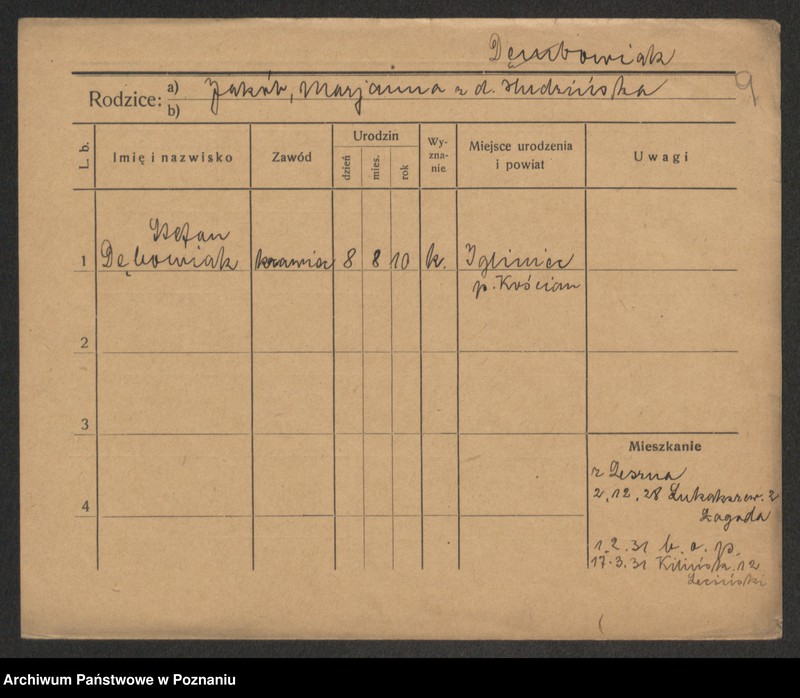 Dęmbowiak
9
Rodzice: a) Jakób, Marjanna z d. Hudzińska
b)
L. b.
Imię i nazwisko
Zawód
Urodzin
dzień
mies.
rok
Wy-
zna-
nie
Miejsce urodzenia
i powiat
Uwagi
1 Stefan
Dębowiak krawiec 8 8 10 k.
p. Kościan
2
3
4
Mieszkanie
z Leszna
2.12.28 2
1.2.31 b. a. p.
17.3.31 Kilińsk. 12
Archiwum Państwowe w Poznaniu